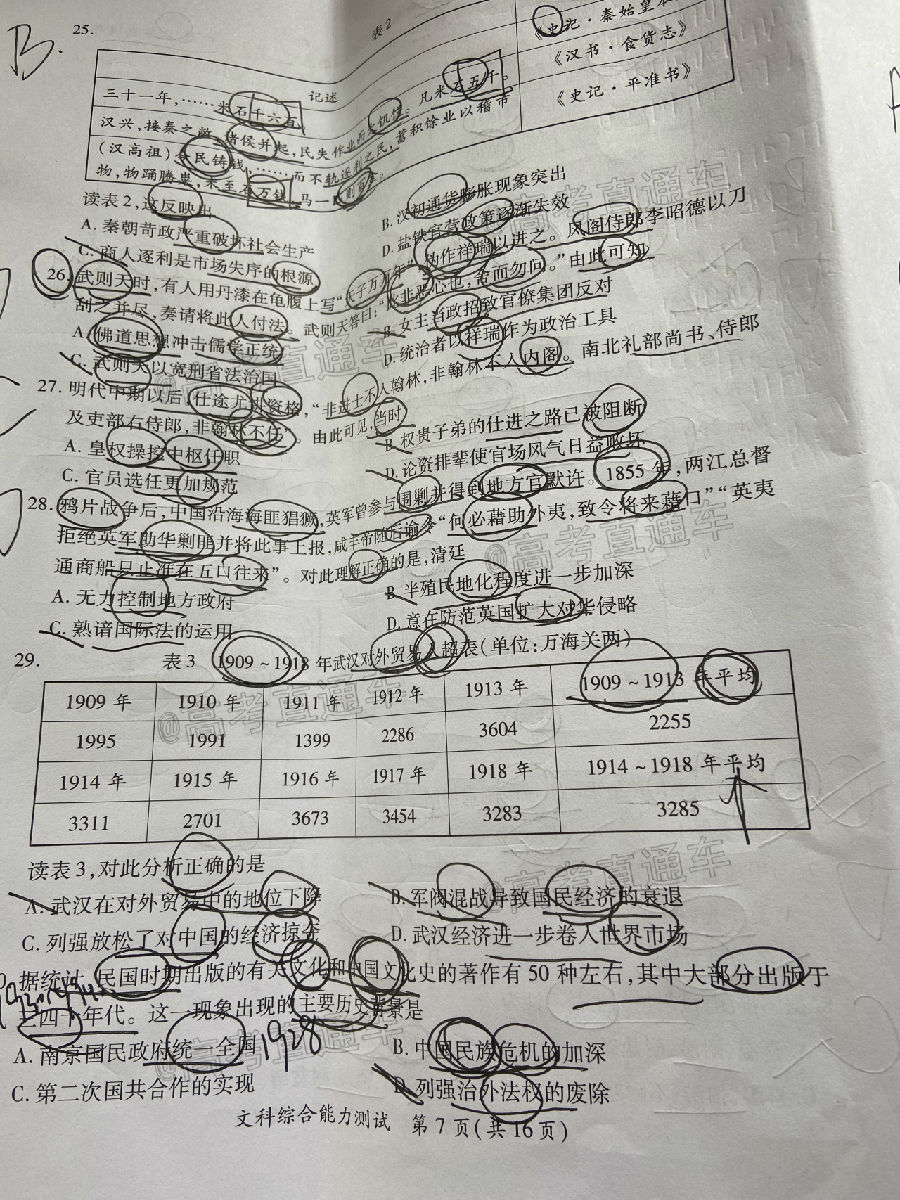 25.
B.
表2
记述
《史记·秦始皇本
三十一年,……米石千六百
《汉书·食货志》
汉兴,接秦之敝,诸侯并起,民失作业而大饥馑。凡米石五千。
《史记·平准书》
(汉高祖)令民铸钱,……而不轨逐利之民,蓄积馀业以稽市
物,物踊腾粜,米至石万钱,马一匹则百金。
读表2,这反映出
A. 秦朝苛政严重破坏社会生产
B. 汉初通货膨胀现象突出
C. 商人逐利是市场失序的根源
D. 盐铁官营政策逐渐失效
26. 武则天时,有人用丹漆在龟腹上写“天子万万年”,伪作祥瑞以进之。凤阁侍郎李昭德以刀
刮之并尽,奏请将此人付法。武则天答曰:“此非恶心也,舍而勿问。”由此可知
A. 佛道思想冲击儒学正统
B. 女主当政招致官僚集团反对
C. 武则天以宽刑省法治国
D. 统治者以祥瑞作为政治工具
27. 明代中期以后,仕途尤讲资格,“非进士不入翰林,非翰林不入内阁。南北礼部尚书、侍郎
及吏部右侍郎,非翰林不任”。由此可见,当时
A. 皇权操控中枢任职
B. 权贵子弟的仕进之路已被阻断
C. 官员选任更加规范
D. 论资排辈使官场风气日益败坏
28. 鸦片战争后,中国沿海海匪猖獗,英军曾参与围剿并得到地方官默许。1855年,两江总督
拒绝英军助华剿匪并将此事上报,咸丰帝随后谕令“何必藉助外夷,致令将来藉口”“英夷
通商船只止准在五口往来”。对此理解正确的是,清廷
A. 无力控制地方政府
B. 半殖民地化程度进一步加深
C. 熟谙国际法的运用
D. 意在防范英国扩大对华侵略
29.
表3 1909~1918年武汉对外贸易入超表(单位:万海关两)
1909年 1910年 1911年 1912年 1913年 1909~1913年平均
1995 1991 1399 2286 3604 2255
1914年 1915年 1916年 1917年 1918年 1914~1918年平均
3311 2701 3673 3454 3283 3285
读表3,对此分析正确的是
A. 武汉在对外贸易中的地位下降
B. 军阀混战导致国民经济的衰退
C. 列强放松了对中国的经济掠夺
D. 武汉经济进一步卷入世界市场
据统计,民国时期出版的有关文化和中国文化史的著作有50种左右,其中大部分出版于
三四十年代。这一现象出现的主要历史背景是
A. 南京国民政府统一全国
1928
B. 中国民族危机的加深
C. 第二次国共合作的实现
D. 列强治外法权的废除
文科综合能力测试 第7页(共16页)